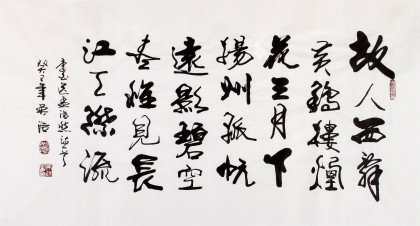 故人西辭
黄鶴樓煙
花三月下
揚州孤帆
遠影碧空
盡惟見長
江天際流
李白送孟浩然